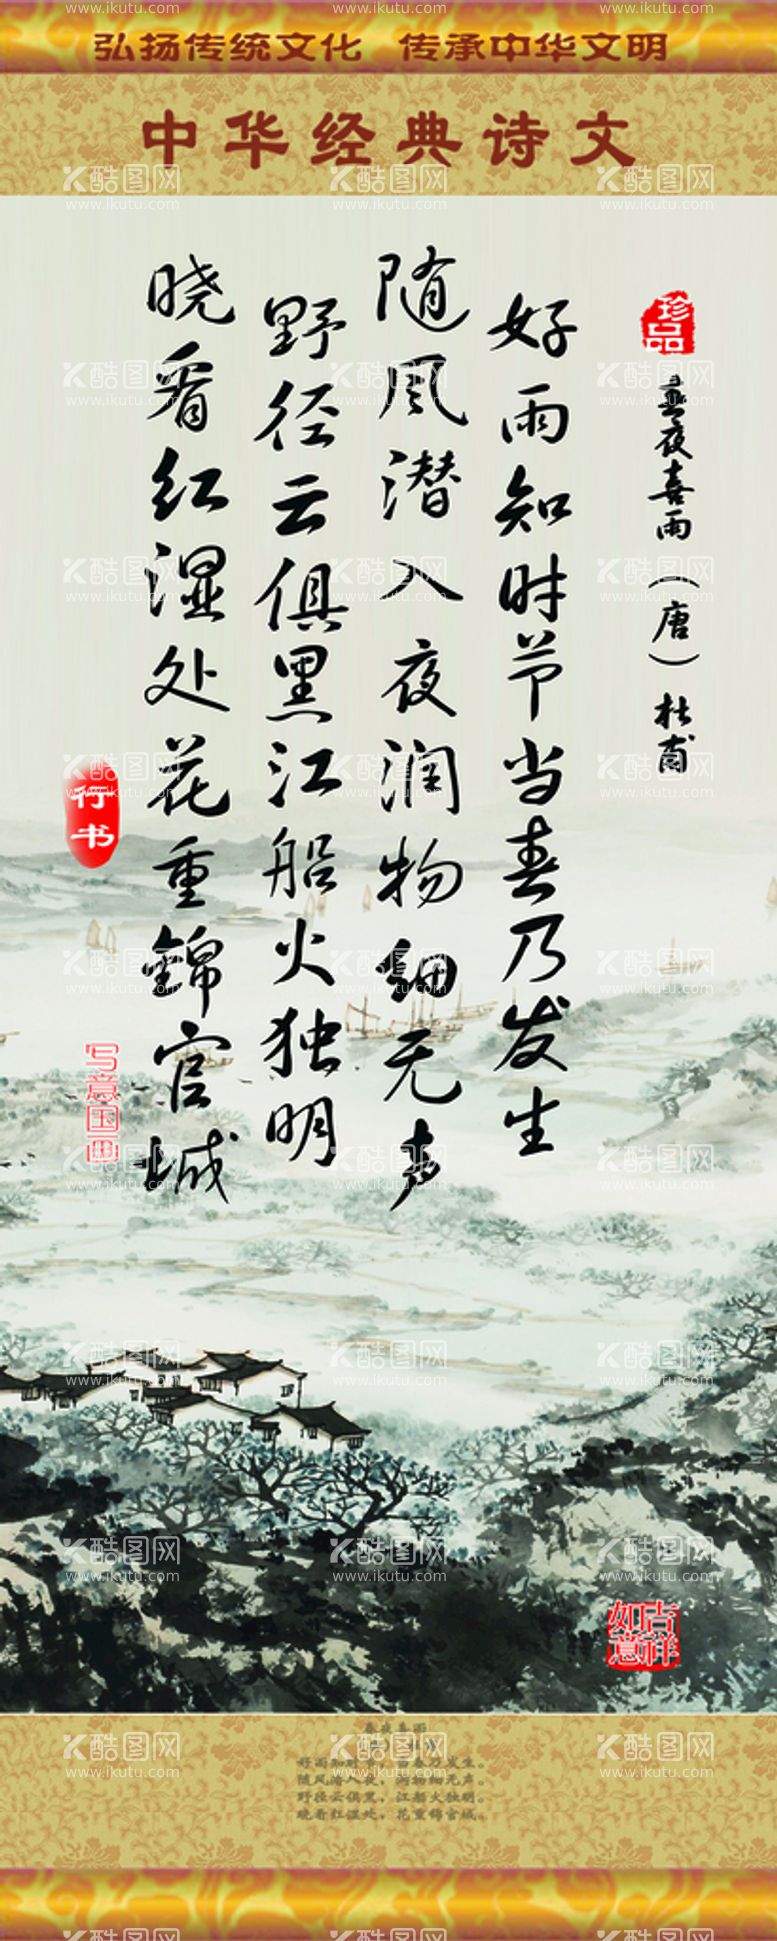 弘扬传统文化 传承中华文明
中华经典诗文
珍品
春夜喜雨（唐）杜甫
好雨知时节当春乃发生
随风潜入夜润物细无声
野径云俱黑江船火独明
晓看红湿处花重锦官城
行书
写意国画
吉祥如意
春夜喜雨
好雨知时节，当春乃发生。
随风潜入夜，润物细无声。
野径云俱黑，江船火独明。
晓看红湿处，花重锦官城。
酷图网
www.ikutu.com